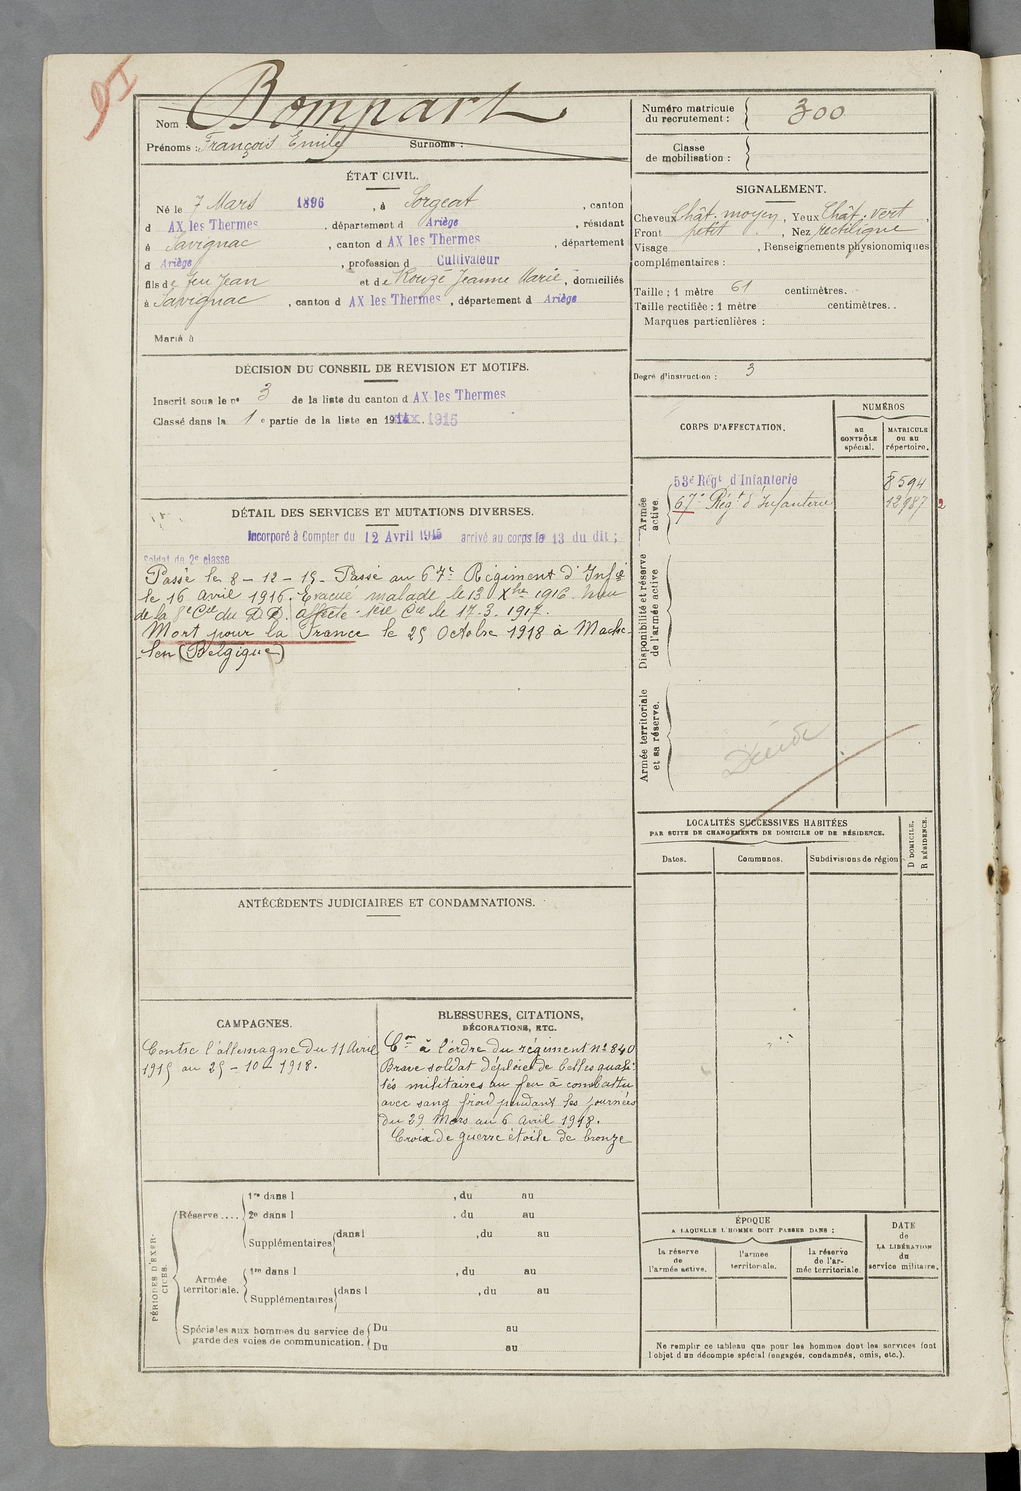 Nom : Bompart
Prénoms : François Emile Surnoms :
ÉTAT CIVIL.
Né le 7 Mars 1896, à Sorgeat, canton
d AX les Thermes, département d Ariège, résidant
à Savignac, canton d AX les Thermes, département
d Ariège, profession d Cultivateur
fils de feu Jean et de Rouzé Jeanne Marie, domiciliés
à Savignac, canton d AX les Thermes, département d Ariège
Marié à
DÉCISION DU CONSEIL DE REVISION ET MOTIFS.
Inscrit sous le n° 3 de la liste du canton d AX les Thermes
Classé dans la 1e partie de la liste en 1915
DÉTAIL DES SERVICES ET MUTATIONS DIVERSES.
Incorporé à Compter du 12 Avril 1915 arrivé au corps le 13 du dit ;
Soldat de 2e classe
Passé le 8-12-15. Passé au 67e Régiment d'Infie
le 16 Avril 1916. Evacué malade le 13 Xbre 1916.
de la 8e Cie du D.D. affecté 1ère Cie le 17.3.1917.
Mort pour la France le 25 Octobre 1918 à Mache-
-len (Belgique)
ANTÉCÉDENTS JUDICIAIRES ET CONDAMNATIONS.
CAMPAGNES.
Contre l'allemagne du 11 Avril
1915 au 25-10-1918.
BLESSURES, CITATIONS,
DÉCORATIONS, ETC.
Con à l'ordre du régiment n° 840
Brave soldat déploie de belles quali-
tés militaires au feu à combattu
avec sang froid pendant les journées
du 29 Mars au 6 Avril 1918.
Croix de guerre étoile de bronze
PÉRIODES D'EXER-
CICES.
Réserve.... 1re dans l , du au
2e dans l , du au
Supplémentaires dans l , du au
Armée
territoriale. 1re dans l , du au
Supplémentaires dans l , du au
Spéciales aux hommes du service de
garde des voies de communication. Du au
Du au
Numéro matricule
du recrutement : 300
Classe
de mobilisation :
SIGNALEMENT.
Cheveux Chât. moyen, Yeux Chât. vert,
Front petit, Nez rectiligne
Visage , Renseignements physionomiques
complémentaires :
Taille : 1 mètre 61 centimètres.
Taille rectifiée : 1 mètre centimètres..
Marques particulières :
Degré d'instruction : 3
CORPS D'AFFECTATION.
NUMÉROS
au
CONTRÔLE
spécial.
MATRICULE
ou au
répertoire.
Armée
active.
53e Régt d'Infanterie 8594
67e Régt d'Infanterie 12987
Disponibilité et réserve
de l'armée active.
Armée territoriale
et sa réserve.
Décédé
LOCALITÉS SUCCESSIVES HABITÉES
PAR SUITE DE CHANGEMENTS DE DOMICILE OU DE RÉSIDENCE.
Dates.
Communes.
Subdivisions de région
D DOMICILE.
R RÉSIDENCE.
ÉPOQUE
A LAQUELLE L'HOMME DOIT PASSER DANS :
la réserve
de
l'armée active.
l'armée
territoriale.
la réserve
de l'ar-
mée territoriale.
DATE
de
LA LIBÉRATION
du
service militaire.
Ne remplir ce tableau que pour les hommes dont les services font
l'objet d'un décompte spécial (engagés, condamnés, omis, etc.).